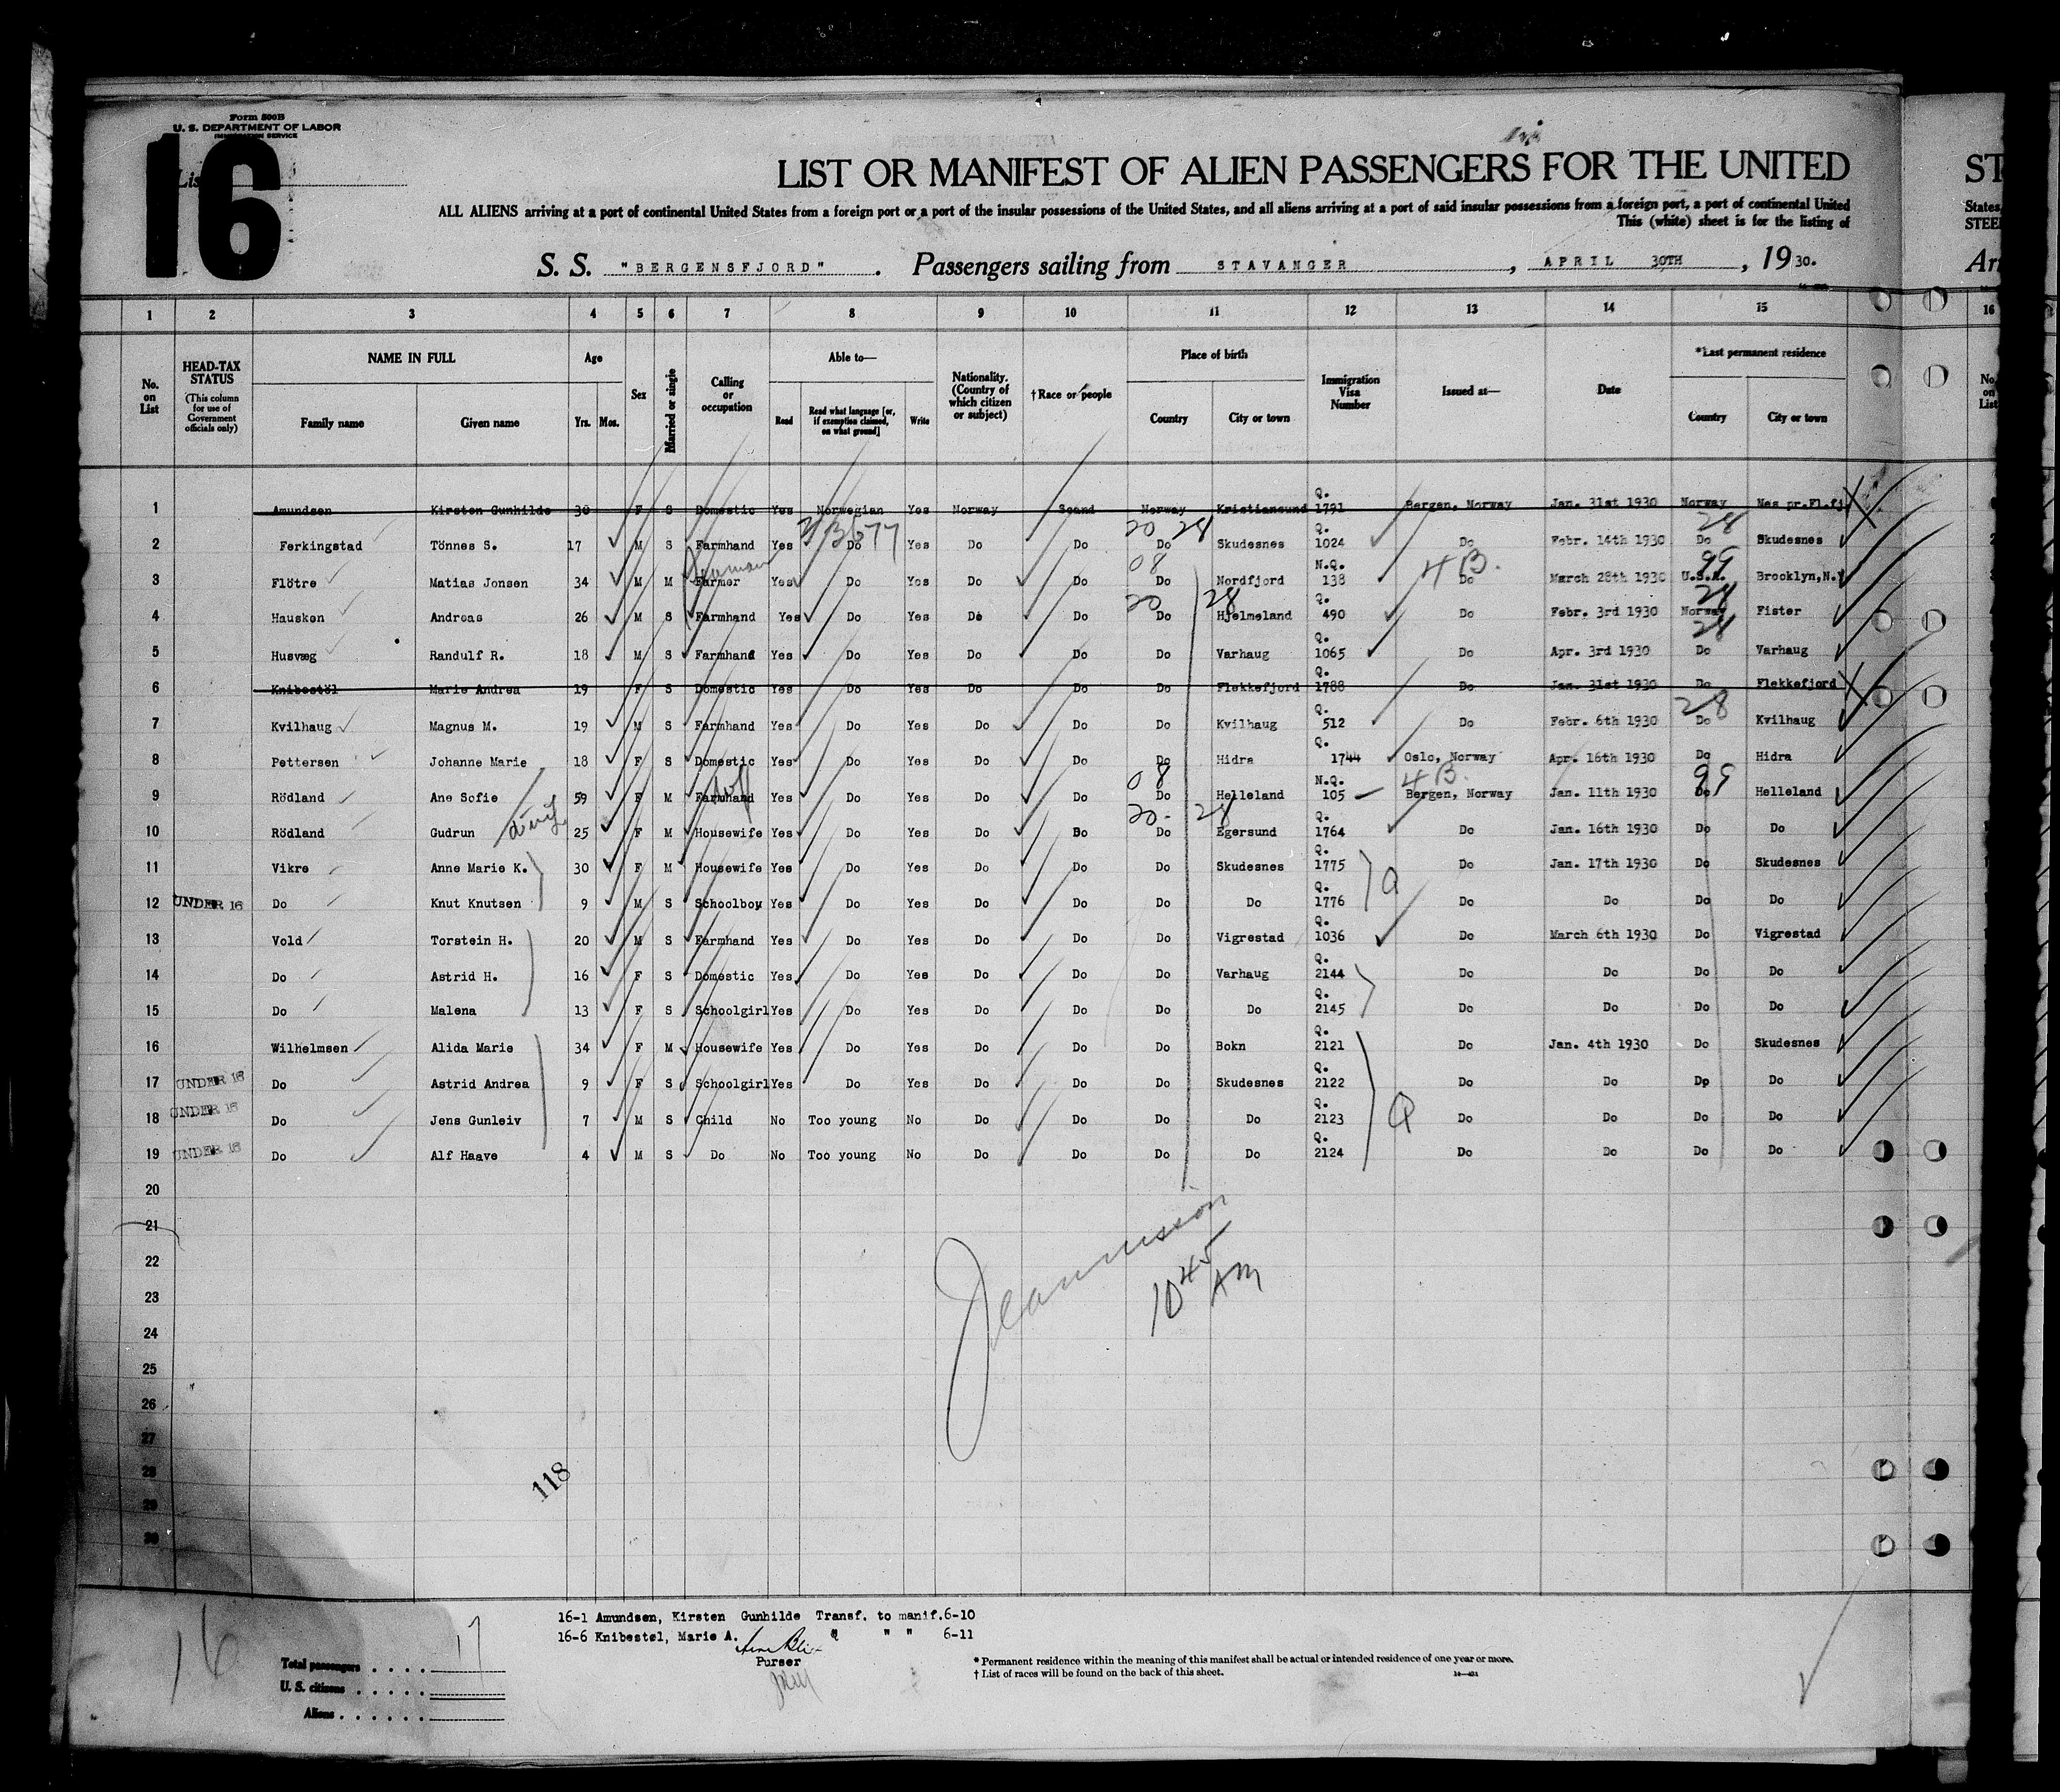 Form 500B
U. S. DEPARTMENT OF LABOR
IMMIGRATION SERVICE
16
LIST OR MANIFEST OF ALIEN PASSENGERS FOR THE UNITED
ALL ALIENS arriving at a port of continental United States from a foreign port or a port of the insular possessions of the United States, and all aliens arriving at a port of said insular possessions from a foreign port, a port of continental United
This (white) sheet is for the listing of
S. S. "BERGENSFJORD". Passengers sailing from STAVANGER, APRIL 30TH, 1930.
1 2 3 4 5 6 7 8 9 10 11 12 13 14 15
No. on List
HEAD-TAX STATUS (This column for use of Government officials only)
NAME IN FULL Family name Given name
Age Yrs. Mos.
Sex
Married or single
Calling or occupation
Able to— Read Read what language [or, if exemption claimed, on what ground] Write
Nationality. (Country of which citizen or subject)
†Race or people
Place of birth Country City or town
Immigration Visa Number
Issued at—
Date
*Last permanent residence Country City or town
1 Amundsen Kirsten Gunhilde 30 F S Domestic Yes Norwegian Yes Norway Scand Norway Kristiansund Q. 1791 Bergen, Norway Jan. 31st 1930 Norway Nes pr.Fl.fj.
2 Ferkingstad Tönnes S. 17 M S Farmhand Yes Do Yes Do Do Do Skudesnes Q. 1024 Do Febr. 14th 1930 Do Skudesnes
3 Flötre Matias Jonsen 34 M M Farmer Yes Do Yes Do Do Do Nordfjord N.Q. 138 Do March 28th 1930 U.S.A. Brooklyn,N.Y
4 Hausken Andreas 26 M S Farmhand Yes Do Yes Do Do Do Hjelmeland Q. 490 Do Febr. 3rd 1930 Norway Fister
5 Husvæg Randulf R. 18 M S Farmhand Yes Do Yes Do Do Do Varhaug Q. 1065 Do Apr. 3rd 1930 Do Varhaug
6 Knibestöl Marie Andrea 19 F S Domestic Yes Do Yes Do Do Do Flekkefjord Q. 1788 Do Jan. 31st 1930 Do Flekkefjord
7 Kvilhaug Magnus M. 19 M S Farmhand Yes Do Yes Do Do Do Kvilhaug Q. 512 Do Febr. 6th 1930 Do Kvilhaug
8 Pettersen Johanne Marie 18 F S Domestic Yes Do Yes Do Do Do Hidra Q. 1744 Oslo, Norway Apr. 16th 1930 Do Hidra
9 Rödland Ane Sofie 59 F M Farmhand Yes Do Yes Do Do Do Helleland N.Q. 105 Bergen, Norway Jan. 11th 1930 Do Helleland
10 Rödland Gudrun 25 F M Housewife Yes Do Yes Do Do Do Egersund Q. 1764 Do Jan. 16th 1930 Do Do
11 Vikre Anne Marie K. 30 F M Housewife Yes Do Yes Do Do Do Skudesnes Q. 1775 Do Jan. 17th 1930 Do Skudesnes
12 UNDER 16 Do Knut Knutsen 9 M S Schoolboy Yes Do Yes Do Do Do Do Q. 1776 Do Do Do Do
13 Vold Torstein H. 20 M S Farmhand Yes Do Yes Do Do Do Vigrestad Q. 1036 Do March 6th 1930 Do Vigrestad
14 Do Astrid H. 16 F S Domestic Yes Do Yes Do Do Do Varhaug Q. 2144 Do Do Do Do
15 Do Malena 13 F S Schoolgirl Yes Do Yes Do Do Do Do Q. 2145 Do Do Do Do
16 Wilhelmsen Alida Marie 34 F M Housewife Yes Do Yes Do Do Do Bokn Q. 2121 Do Jan. 4th 1930 Do Skudesnes
17 UNDER 16 Do Astrid Andrea 9 F S Schoolgirl Yes Do Yes Do Do Do Skudesnes Q. 2122 Do Do Do Do
18 UNDER 16 Do Jens Gunleiv 7 M S Child No Too young No Do Do Do Do Q. 2123 Do Do Do Do
19 UNDER 16 Do Alf Haave 4 M S Do No Too young No Do Do Do Do Q. 2124 Do Do Do Do
20
21
22
23
24
25
26
27
28
29
30
10 45 AM
118
16-1 Amundsen, Kirsten Gunhilde Transf. to manif.6-10
16-6 Knibestøl, Marie A. " " " 6-11
Purser
16
Total passengers . . . . 17
U. S. citizens . . . . .
Aliens . . . . . .
* Permanent residence within the meaning of this manifest shall be actual or intended residence of one year or more.
† List of races will be found on the back of this sheet.